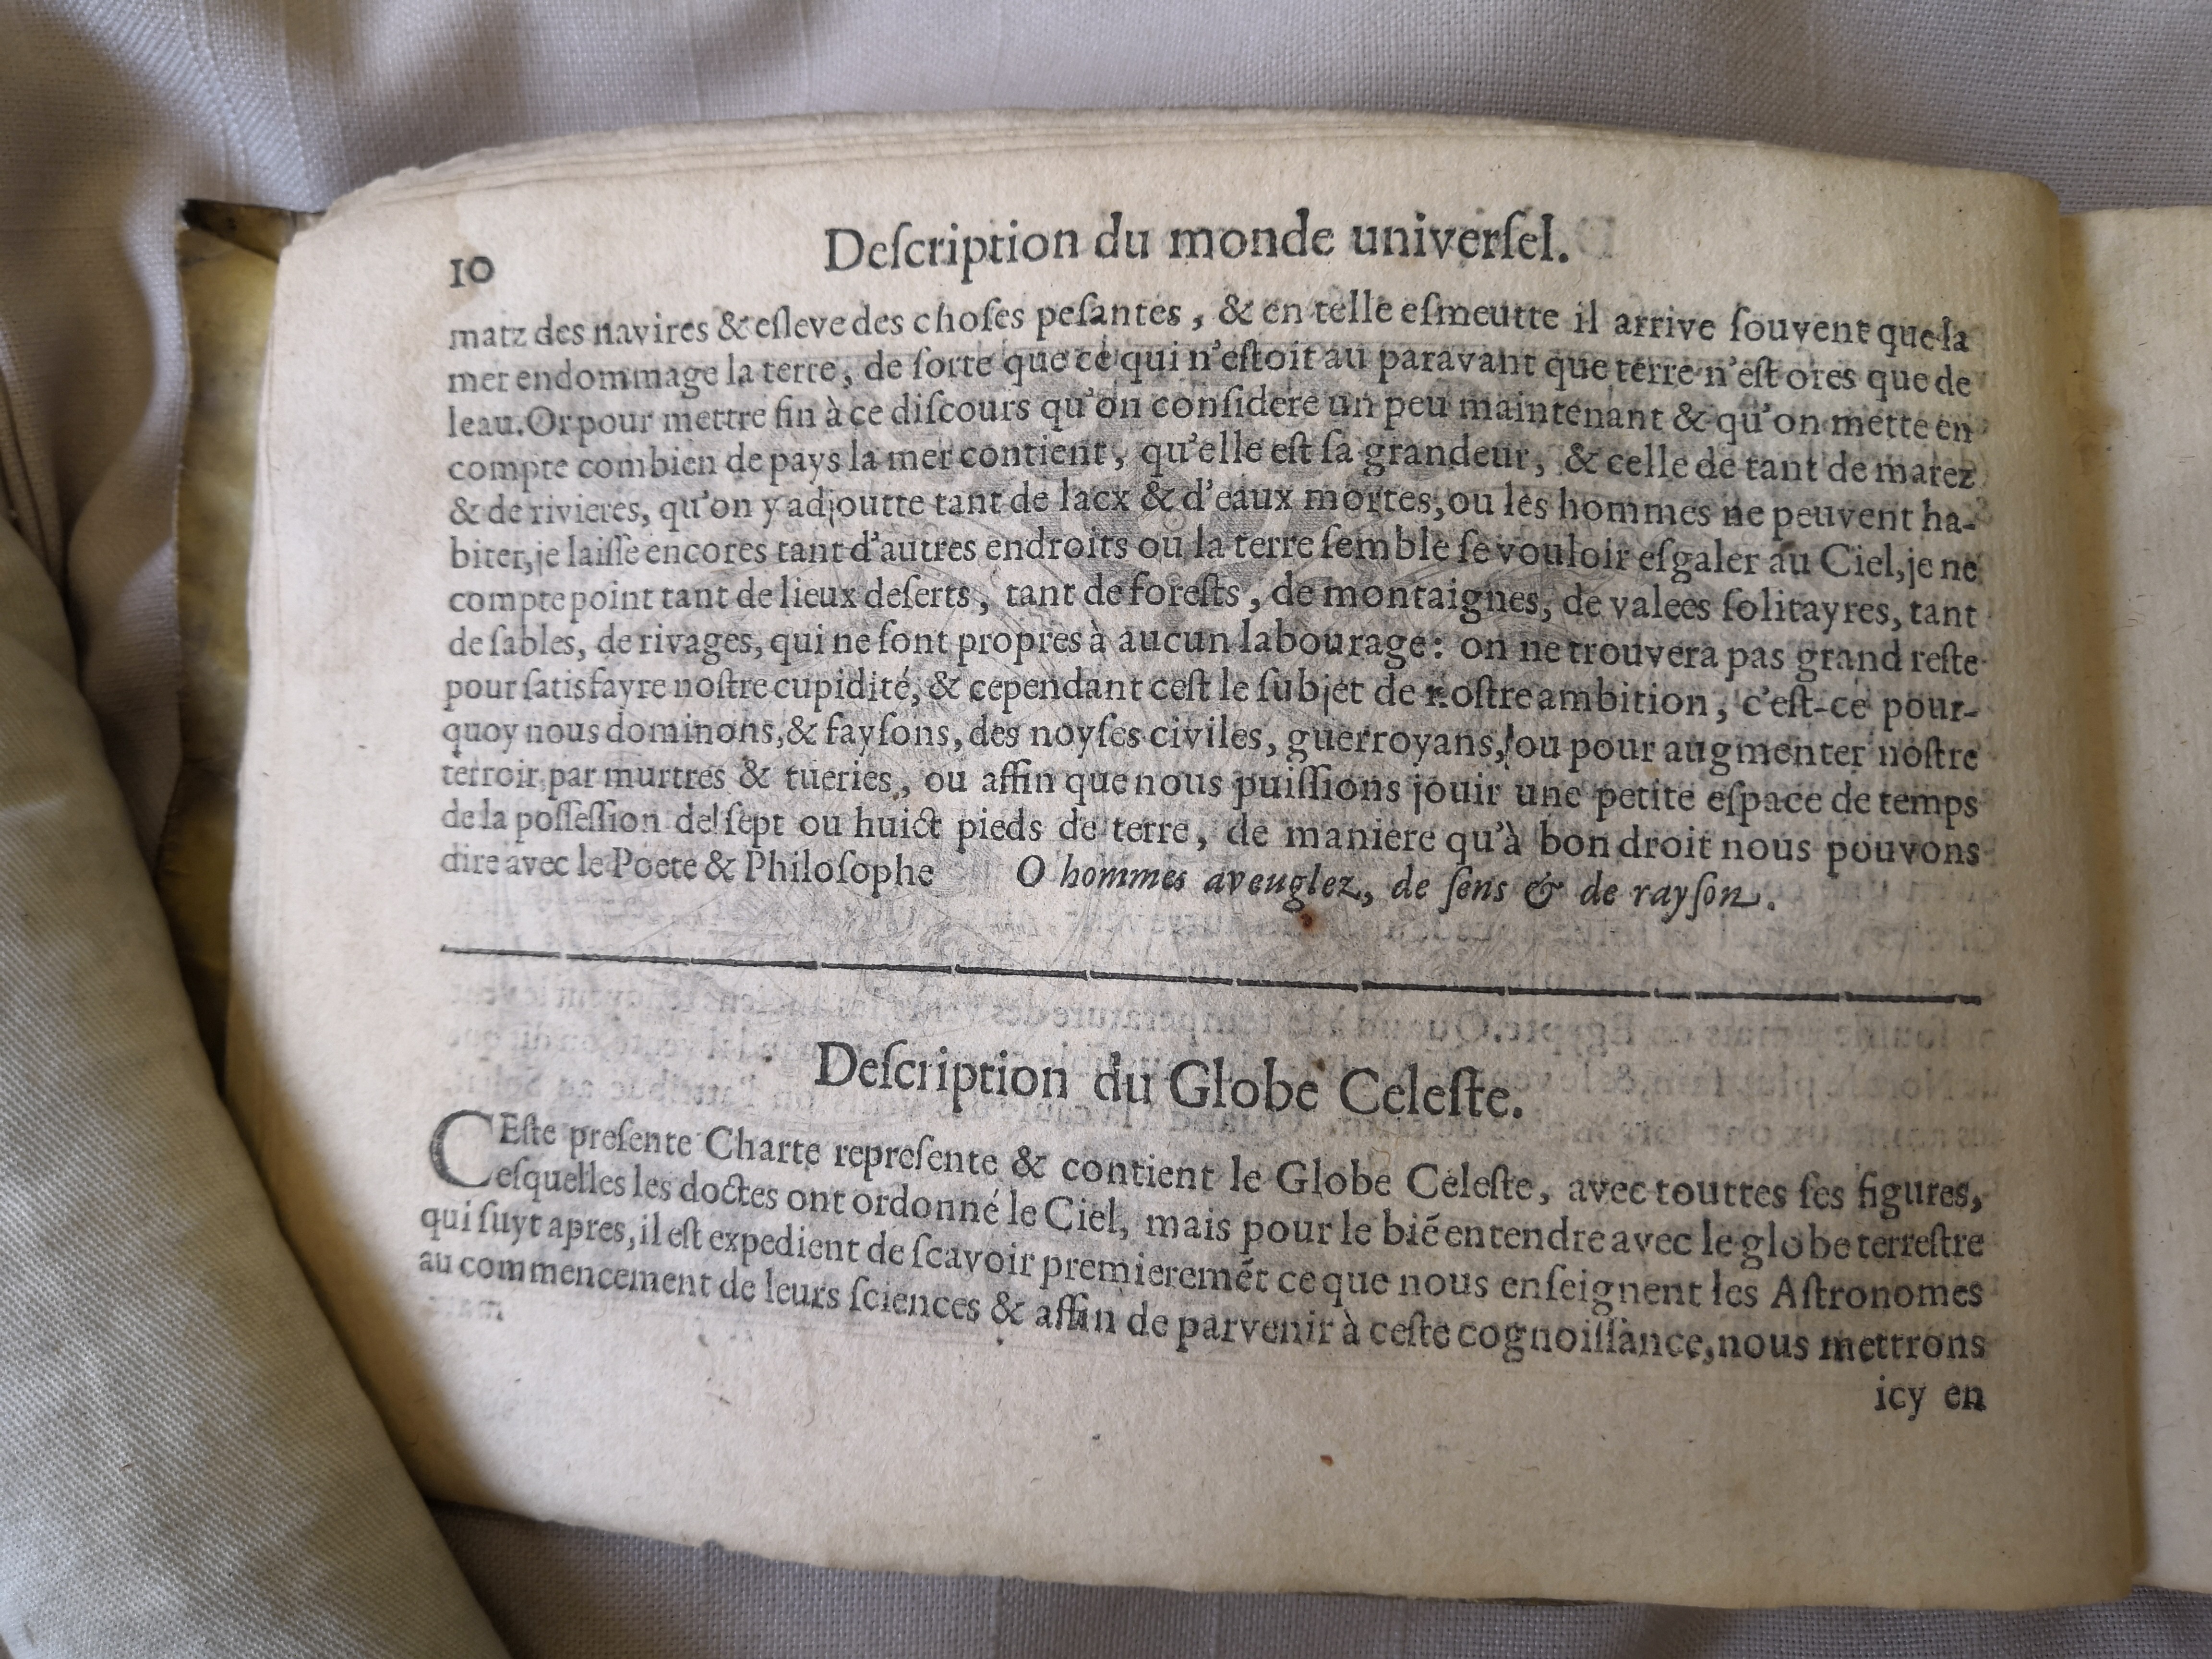 10
Deſcription du monde univerſel.
matz des navires & eſleve des choſes peſantes, & en telle eſmeutte il arrive ſouvent que la
mer endommage la terre, de ſorte que ce qui n'eſtoit au paravant que terre n'eſt ores que de
leau. Or pour mettre fin à ce diſcours qu'on conſidere un peu maintenant & qu'on mette en
compte combien de pays la mer contient, qu'elle eſt ſa grandeur, & celle de tant de marez
& de rivieres, qu'on y adjoutte tant de lacx & d'eaux mortes, ou les hommes ne peuvent ha-
biter, je laiſſe encores tant d'autres endroits ou la terre ſemble ſe vouloir eſgaler au Ciel, je ne
compte point tant de lieux deſerts, tant de foreſts, de montaignes, de valees ſolitayres, tant
de ſables, de rivages, qui ne ſont propres à aucun labourage: on ne trouvera pas grand reſte
pour ſatisfayre noſtre cupidité, & cependant ceſt le ſubjet de noſtre ambition, c'eſt-ce pour-
quoy nous dominons, & fayſons, des noyſes civiles, guerroyans, ou pour augmenter noſtre
terroir par murtres & tueries, ou affin que nous puiſſions jouir une petite eſpace de temps
de la poſſeſſion de ſept ou huict pieds de terre, de maniere qu'à bon droit nous pouvons
dire avec le Poete & Philoſophe O hommes aveuglez, de ſens & de rayſon.
Deſcription du Globe Celeſte.
CEſte preſente Charte repreſente & contient le Globe Celeſte, avec touttes ſes figures,
eſquelles les doctes ont ordonné le Ciel, mais pour le biẽ entendre avec le globe terreſtre
qui ſuyt apres, il eſt expedient de ſcavoir premieremẽt ce que nous enſeignent les Aſtronomes
au commencement de leurs ſciences & affin de parvenir à ceſte cognoiſſance, nous mettrons
icy en